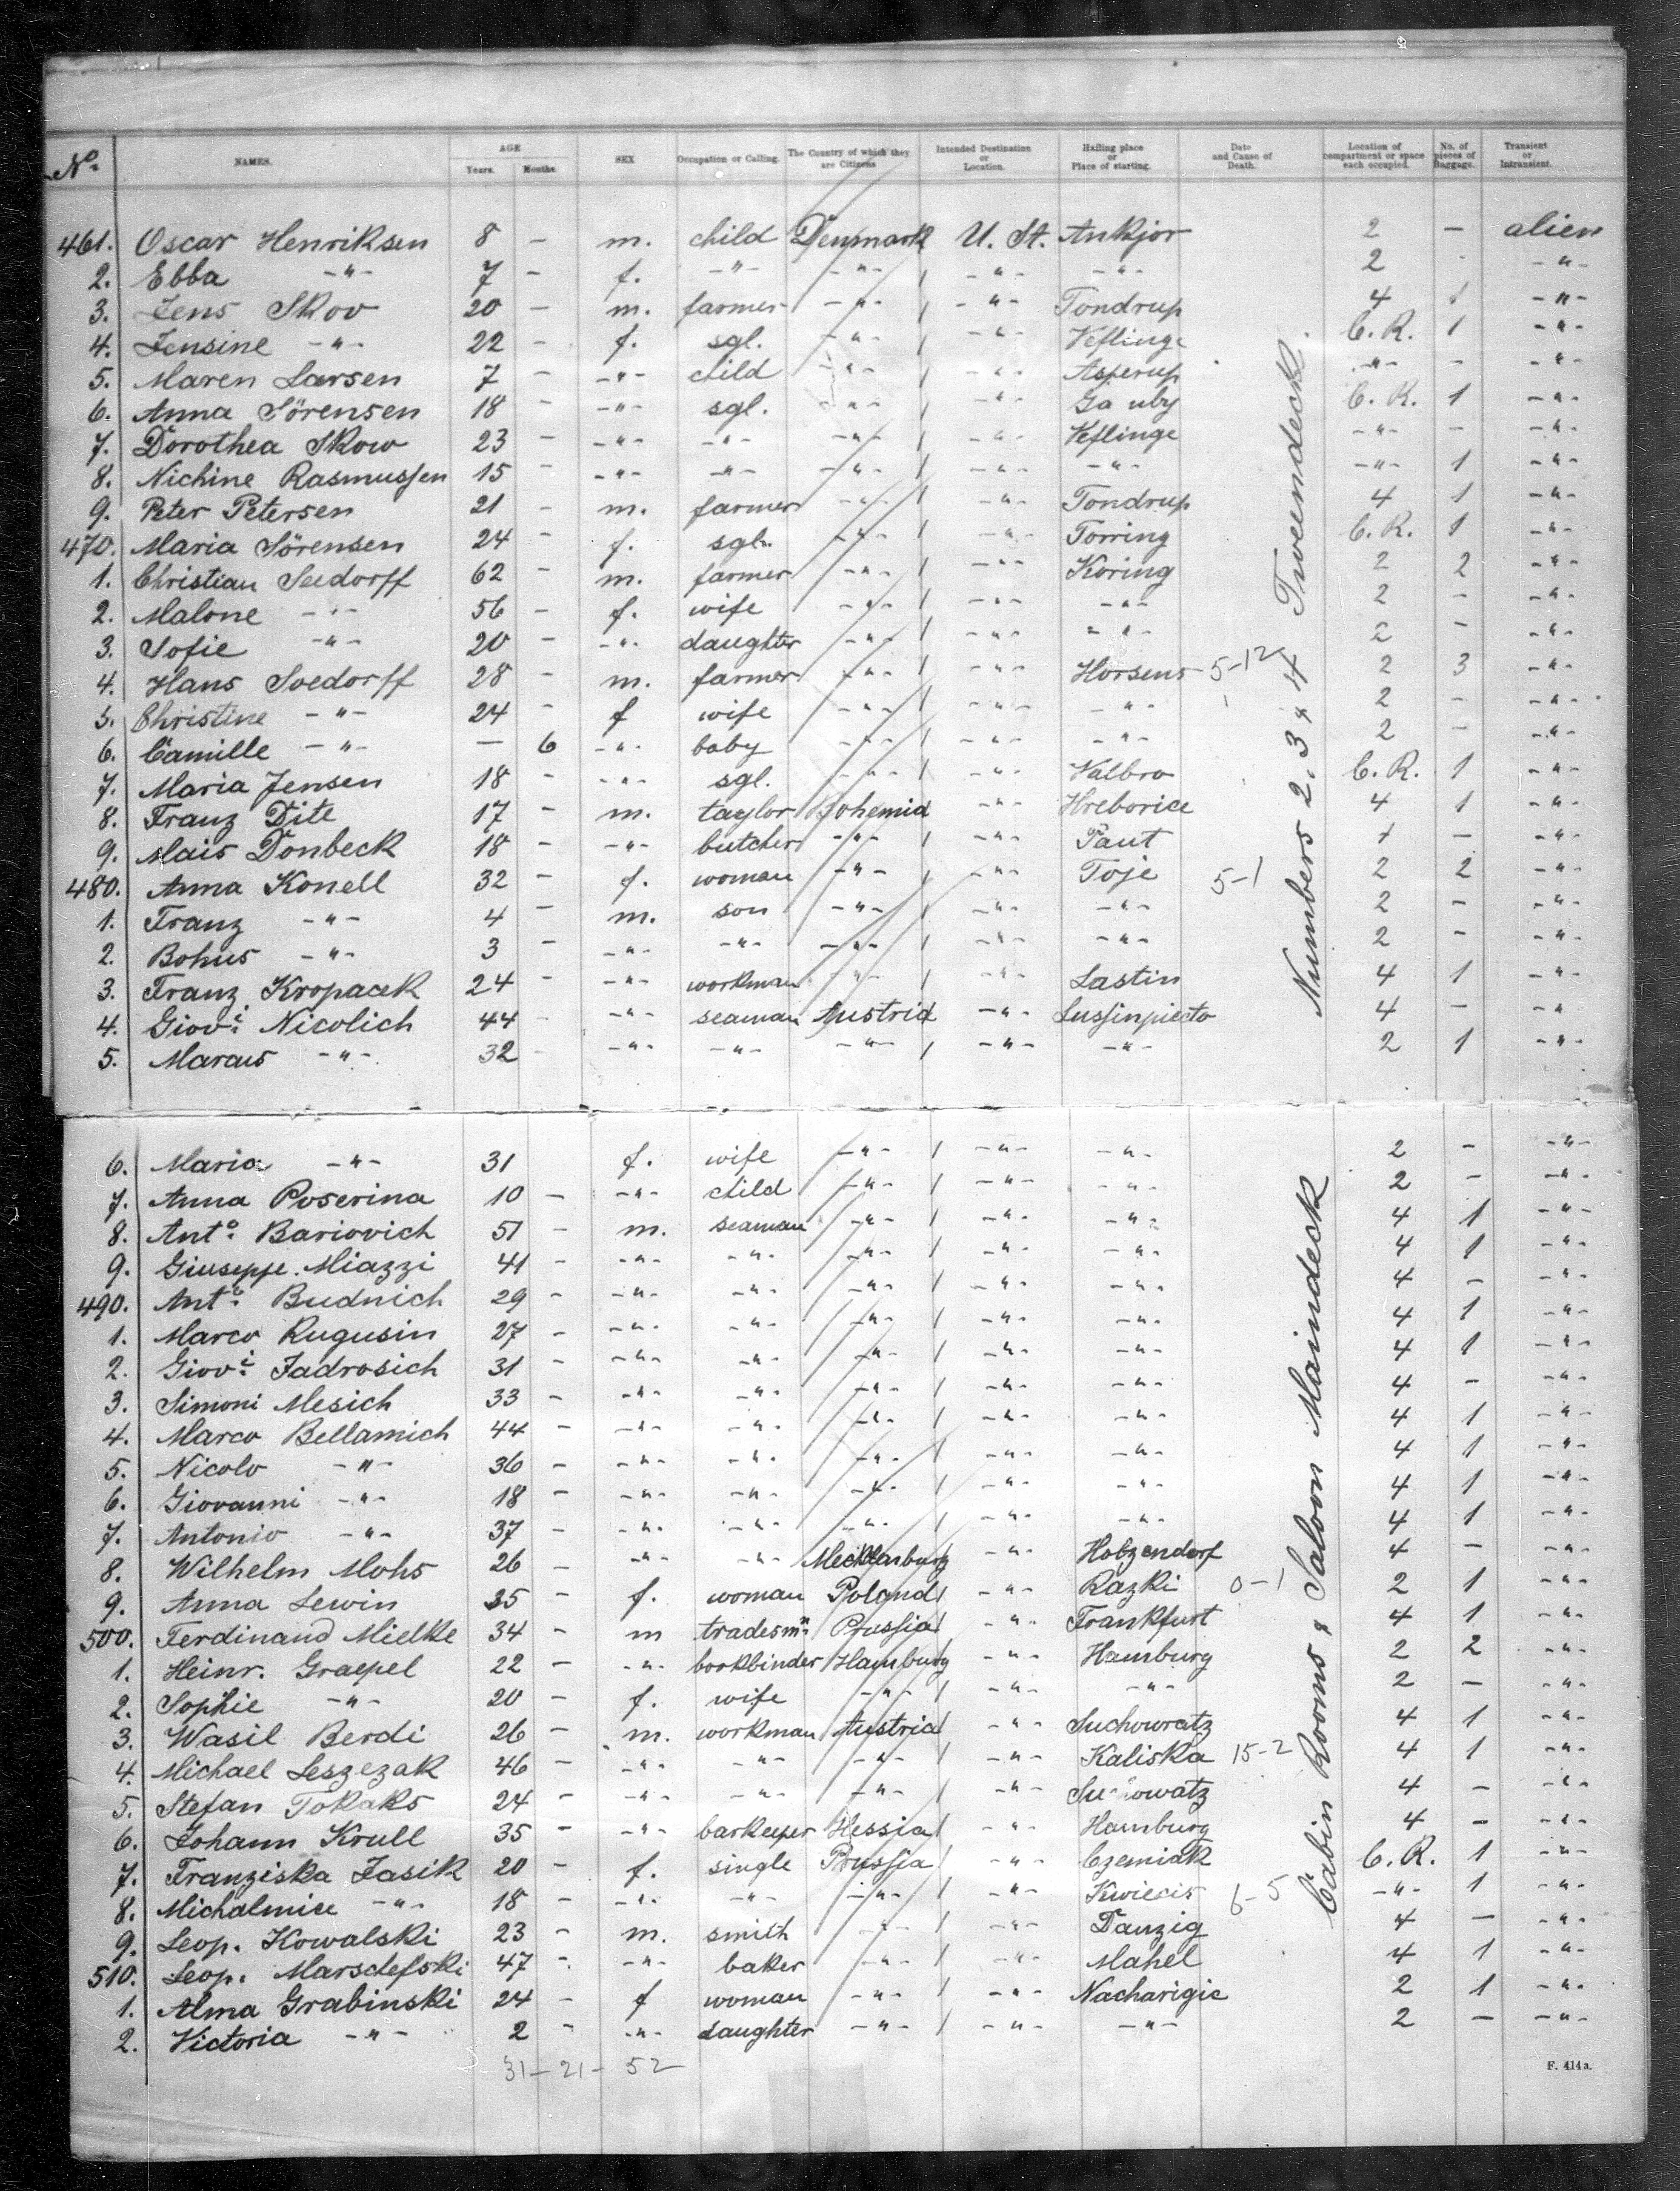 No. NAMES. AGE Years. Months. SEX Occupation or Calling. The Country of which they are Citizens Intended Destination or Location. Hailing place or Place of starting. Date and Cause of Death. Location of compartment or space each occupied. No. of pieces of Baggage. Transient or Intransient.
461. Oscar Henriksen 8 - m. child Denmark U. St. Ankjor 2 - alien
2. Ebba -"- 7 - f. -"- -"- -"- -"- 2 -"-
3. Jens Skov 20 - m. farmer -"- -"- Tondrup 4 1 -"-
4. Jensine -"- 22 - f. sgl. -"- -"- Veflinge C. R. 1 -"-
5. Maren Larsen 7 - -"- child -"- -"- Asperup -"- - -"-
6. Anna Sörensen 18 - -"- sgl. -"- -"- C. R. 1 -"-
7. Dorothea Skow 23 - -"- -"- -"- -"- Veflinge -"- - -"-
8. Nichine Rasmussen 15 - -"- -"- -"- -"- -"- -"- 1 -"-
9. Peter Petersen 21 - m. farmer -"- -"- Tondrup 4 1 -"-
470. Maria Sörensen 24 - f. sgl. -"- -"- Torring C. R. 1 -"-
1. Christian Seedorff 62 - m. farmer -"- -"- Koring 2 2 -"-
2. Malone -"- 56 - f. wife -"- -"- -"- 2 - -"-
3. Sofie -"- 20 - -"- daughter -"- -"- -"- 2 - -"-
4. Hans Soedorff 28 - m. farmer -"- -"- Horsens 5-12 2 3 -"-
5. Christine -"- 24 - f wife -"- -"- -"- 2 - -"-
6. Camille -"- — 6 -"- baby -"- -"- -"- 2 - -"-
7. Maria Jensen 18 - -"- sgl. -"- -"- Valbro C. R. 1 -"-
8. Franz Dite 17 - m. taylor Bohemia -"- Hreborice 4 1 -"-
9. Mais Donbeck 18 - -"- butcher -"- -"- Paut - -"-
480. Anna Konell 32 - f. woman -"- -"- Toje 5-1 2 2 -"-
1. Franz -"- 4 - m. son -"- -"- -"- 2 - -"-
2. Bohus -"- 3 - -"- -"- -"- -"- -"- 2 - -"-
3. Franz Kropacek 24 - -"- workman -"- -"- Lastin 4 1 -"-
4. Giov.i Nicolich 44 - -"- seaman Austria -"- Lussinpiecto 4 - -"-
5. Maraus -"- 32 - -"- -"- -"- -"- -"- 2 1 -"-
Numbers 2, 3 & 4 Tweendeck.
6. Maria -"- 31 f. wife -"- -"- -"- 2 - -"-
7. Anna Poserina 10 - -"- child -"- -"- -"- 2 - -"-
8. Ant.o Bariovich 51 - m. seaman -"- -"- -"- 4 1 -"-
9. Giuseppe Miazzi 41 - -"- -"- -"- -"- -"- 4 1 -"-
490. Ant.o Budnich 29 - -"- -"- -"- -"- -"- 4 - -"-
1. Marco Rugusin 27 - -"- -"- -"- -"- -"- 4 1 -"-
2. Giov.i Jadrosich 31 - -"- -"- -"- -"- -"- 4 1 -"-
3. Simoni Mesich 33 - -"- -"- -"- -"- -"- 4 - -"-
4. Marco Bellamich 44 - -"- -"- -"- -"- -"- 4 1 -"-
5. Nicolo -"- 36 - -"- -"- -"- -"- -"- 4 1 -"-
6. Giovanni -"- 18 - -"- -"- -"- -"- -"- 4 1 -"-
7. Antonio -"- 37 - -"- -"- -"- -"- -"- 4 1 -"-
8. Wilhelm Mohs 26 - -"- -"- Mecklenburg -"- Holzendorf 4 - -"-
9. Anna Lewin 35 - f. woman Poland -"- Razki 0-1 2 1 -"-
500. Ferdinand Mielke 34 - m tradesm.n Prussia -"- Frankfurt 4 1 -"-
1. Heinr. Graepel 22 - -"- bookbinder Hamburg -"- Hamburg 2 2 -"-
2. Sophie -"- 20 - f. wife -"- -"- -"- 2 - -"-
3. Wasil Berdi 26 - m. workman Austria -"- Suchowratz 4 1 -"-
4. Michael Leszezak 46 - -"- -"- -"- -"- Kaliska 15-2 4 1 -"-
5. Stefan Tokaks 24 - -"- -"- -"- -"- 4 - -"-
6. Johann Krull 35 - -"- barkeeper Hessia -"- Hamburg 4 - -"-
7. Franziska Jasik 20 - f. single Prussia -"- Czemiak C. R. 1 -"-
8. Michalmire -"- 18 - -"- -"- -"- -"- Kwiecis 6-5 -"- 1 -"-
9. Leop. Kowalski 23 - m. smith -"- -"- Danzig 4 - -"-
510. Leop. Marschefski 47 - -"- baker -"- -"- Mahel 4 1 -"-
1. Alma Grabinski 24 - f woman -"- -"- Nacharigie 2 1 -"-
2. Victoria -"- 2 - -"- daughter -"- -"- -"- 2 - -"-
Cabin Rooms & Saloon Maindeck
31-21-52
F. 414a.